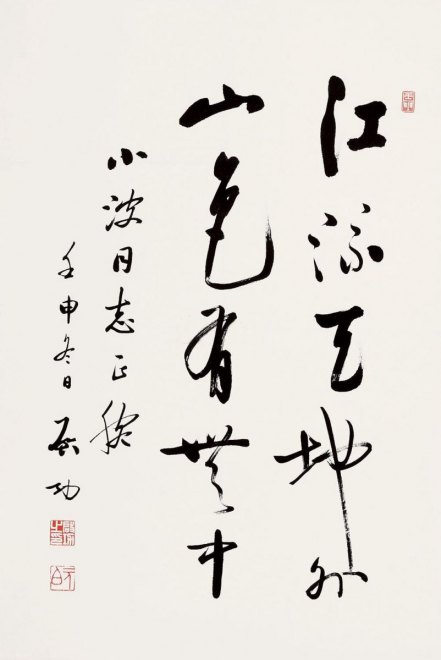 江流天地外
山色有无中
小波同志正腕
壬申冬日 启功